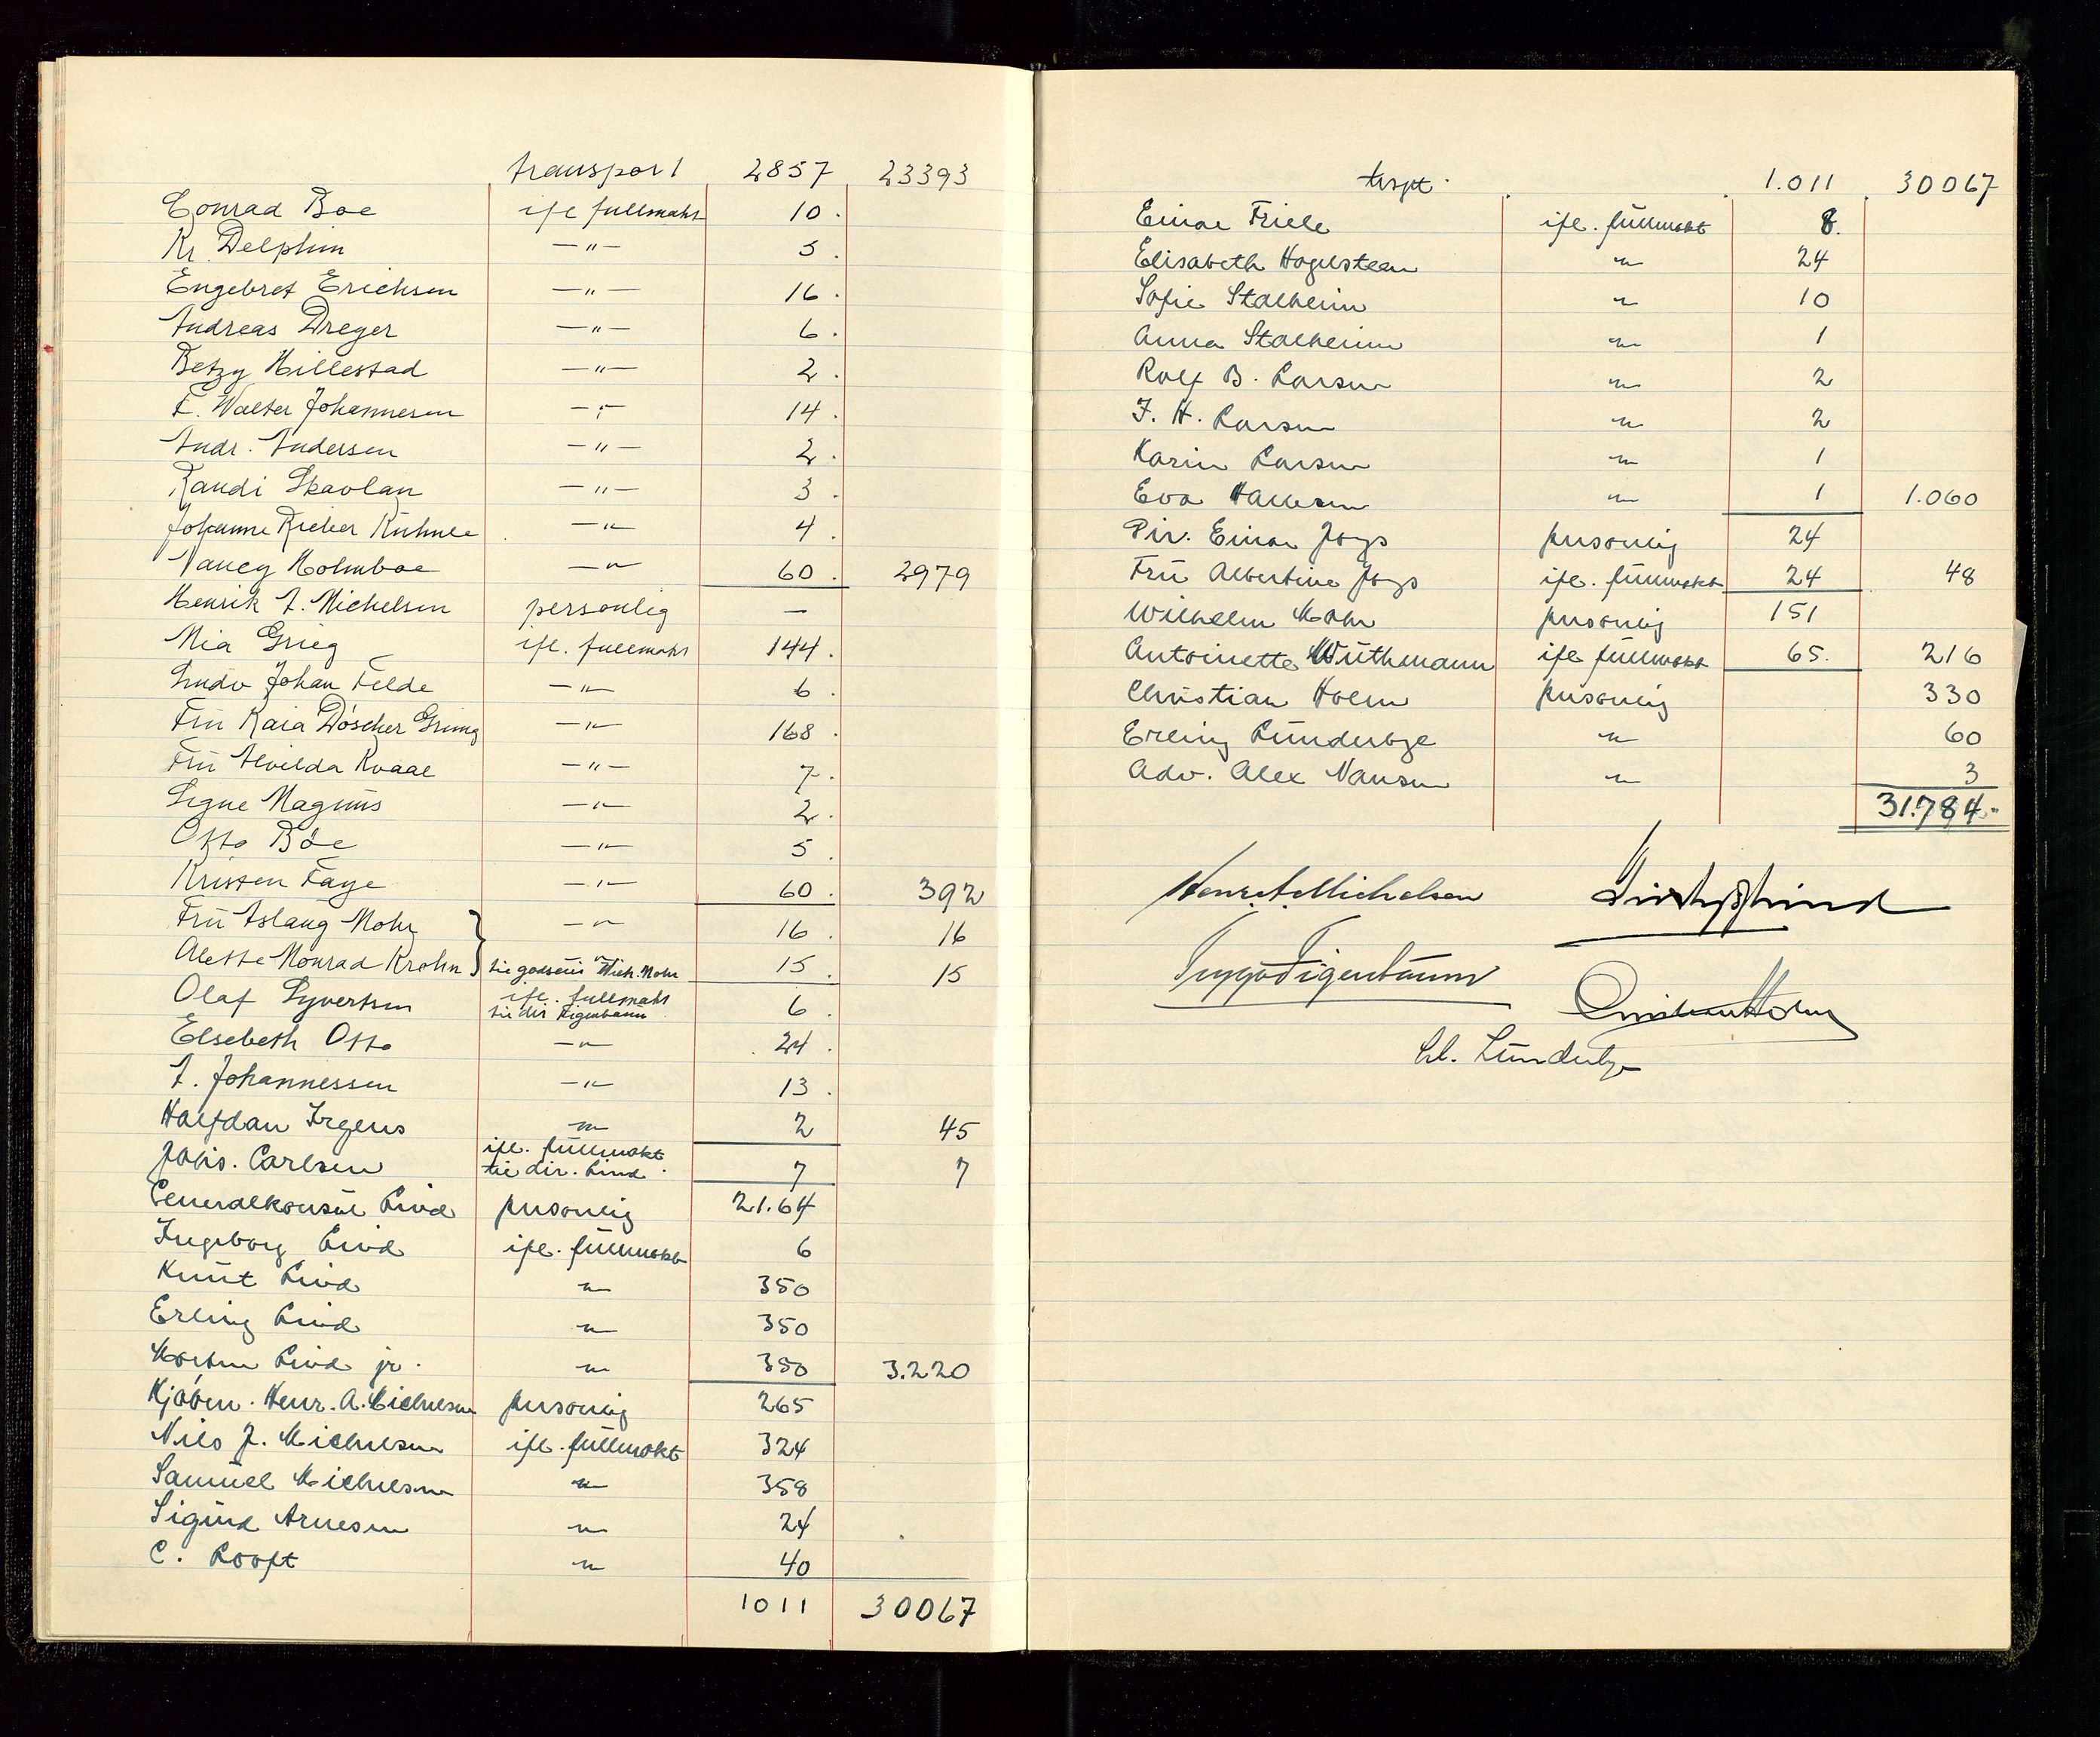 transport 2857 23393
Conrad Boe ifl fullmakt 10.
Kr. Delphin —"— 5.
Engebret Erichsen —"— 16.
Andreas Dreyer —"— 6.
Betzy Hillestad —"— 2.
F. Walter Johannesen —"— 14.
Andr. Andersen —"— 2.
Randi Skavlan —"— 3.
Johanne Rieber Kuhnle —"— 4.
Nancy Holmboe —"— 60. 2979
Henrik A. Michelsen personlig —
Mia Grieg ifl. fullmakt 144.
Johan Felde —"— 6.
Fru Kaia Döscher Grung —"— 168.
Fru Alvilda Kvaal —"— 7.
Signe Magnus —"— 2.
Otto Bøe —"— 5.
Kristen Faye —"— 60. 392
Fru Aslaug Mohr —"— 16. 16
Alette Monrad Krohn } til godseier Wilh. Mohr 15. 15
Olaf Syvertsen ifl. fullmakt til dir Figenbaum 6.
Elsebeth Otto —"— 24.
A. Johannessen —"— 13.
Halfdan Irgens " 2 45
Johs. Carlsen ifl. fullmakt til dir. Lind. 7 7
Generalkonsul Lind personlig 21.64
Ingeborg Lind ifl. fullmakt 6
Knut Lind " 350
Erling Lind " 350
Morten Lind jr. " 350 3.220
Kjøbm. Henr. A. Michelsen personlig 265
Nils J. Michelsen ifl. fullmakt 324
Samuel Michelsen " 358
Sigurd Arnesen " 24
C. Looft " 40
1011 30067
trspt. 1.011 30067
Einar Friele ifl. fullmakt 8.
Elisabeth Hagelsteen " 24
Sofie Stalheim " 10
Anna Stalheim " 1
Rolf B. Larsen " 2
F. H. Larsen " 2
Karin Larsen " 1
Eva Halvorsen " 1 1.060
Dir. Einar Joys personlig 24
Fru Albertine Joys ifl. fullmakt 24 48
Wilhelm Mohr personlig 151
Antoinette Wüthmann ifl fullmakt 65. 216
Christian Holm personlig 330
Erling Lundertze " 60
Adv. Alex Nansen " 3
31.784.-
Henr. A. Michelsen
Trygve Figenbaum
Christian Holm